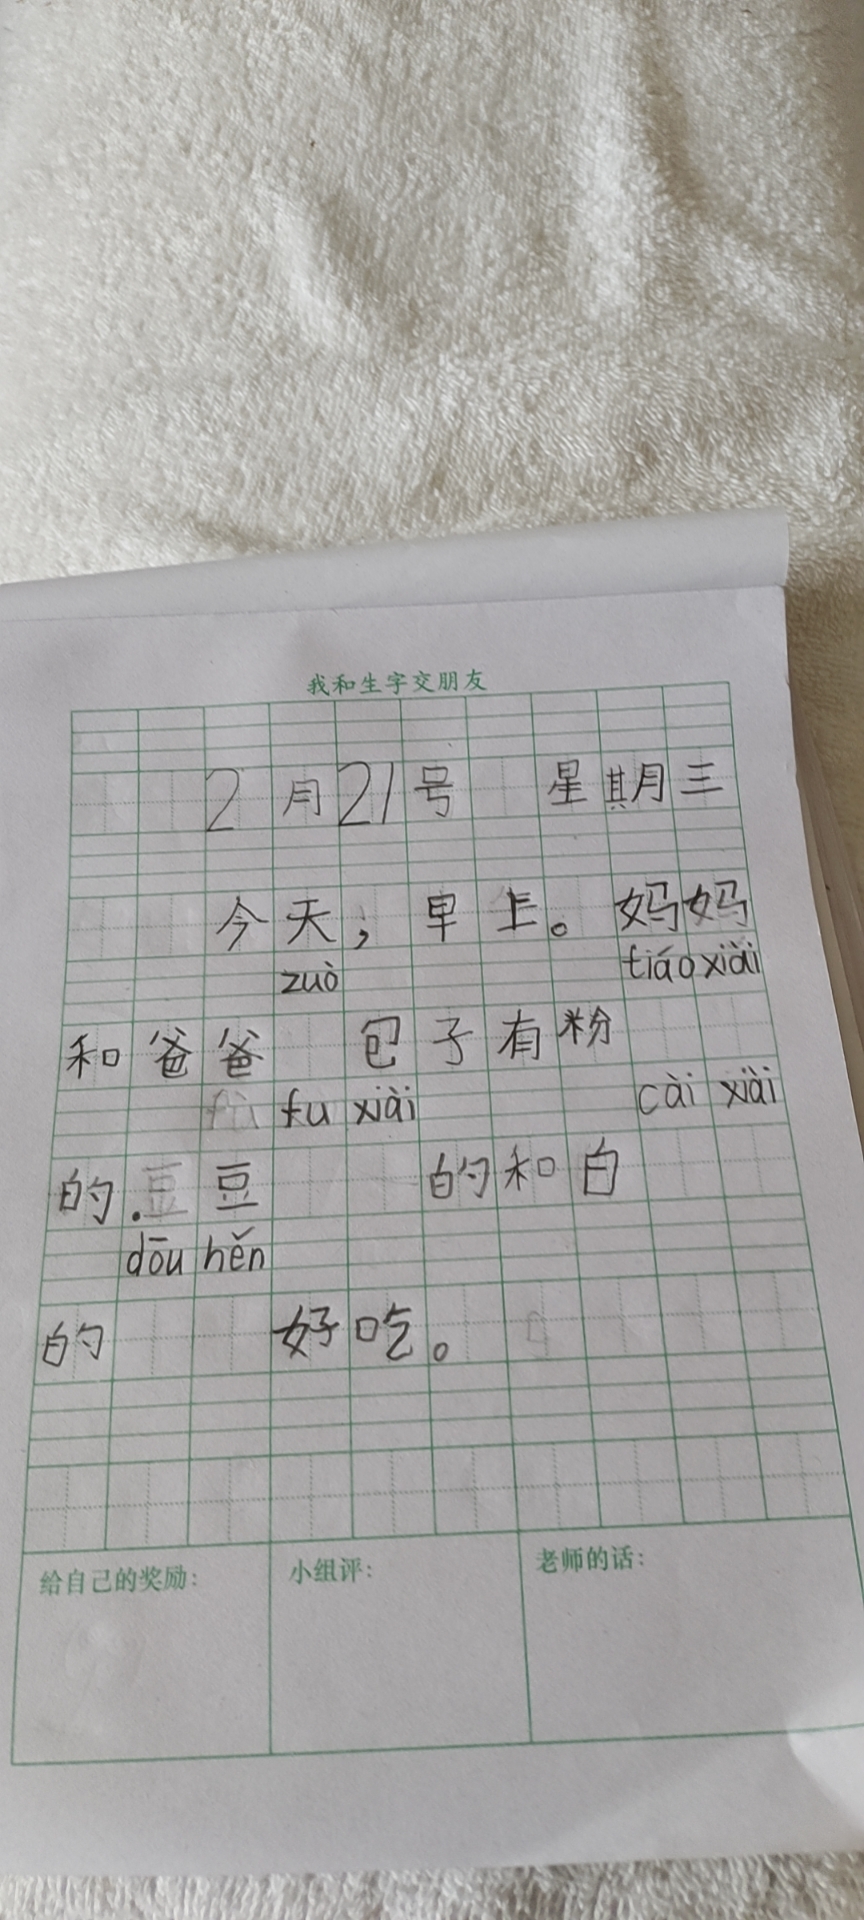 我和生字交朋友
2月21号 星期三
今天，早上。妈妈
zuò tiáo xiài
和爸爸 包子有粉
fu xiài cài xiài
的.豆豆 的和白
dōu hěn
的 好吃。
给自己的奖励：
小组评：
老师的话：